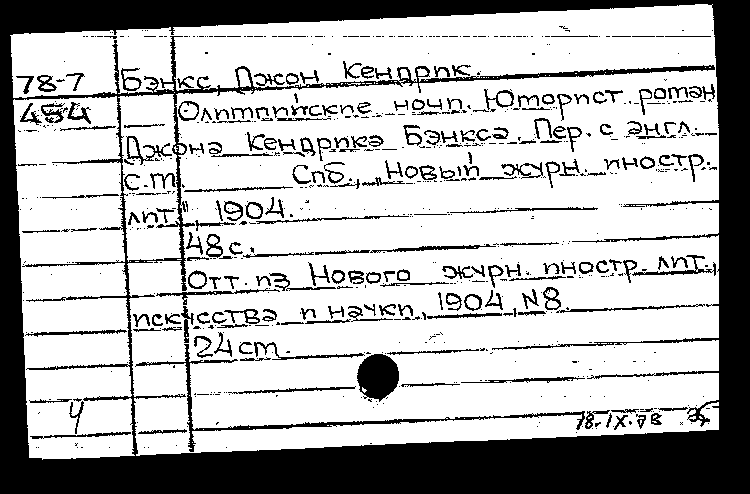 78-7 Бэнкс, Джон Кендрик.
484 Олимпийские ночи. Юморист. роман
Джона Кендрика Бэнкса. Пер. с англ.
С.М. Спб., „Новый журн. иностр.
лит.", 1904.
48 с.
Отт. из Нового журн. иностр. лит.,
искусства и науки, 1904, N8.
24 cm.
Ч 18.IX.78